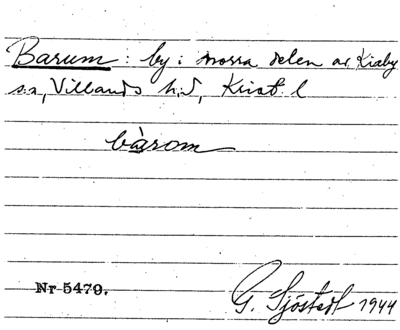 Barum: by i norra delen av Kiaby
sn, Villands hd, Krist l
bàrom
Nr 5479. G. Sjöstedt 1944